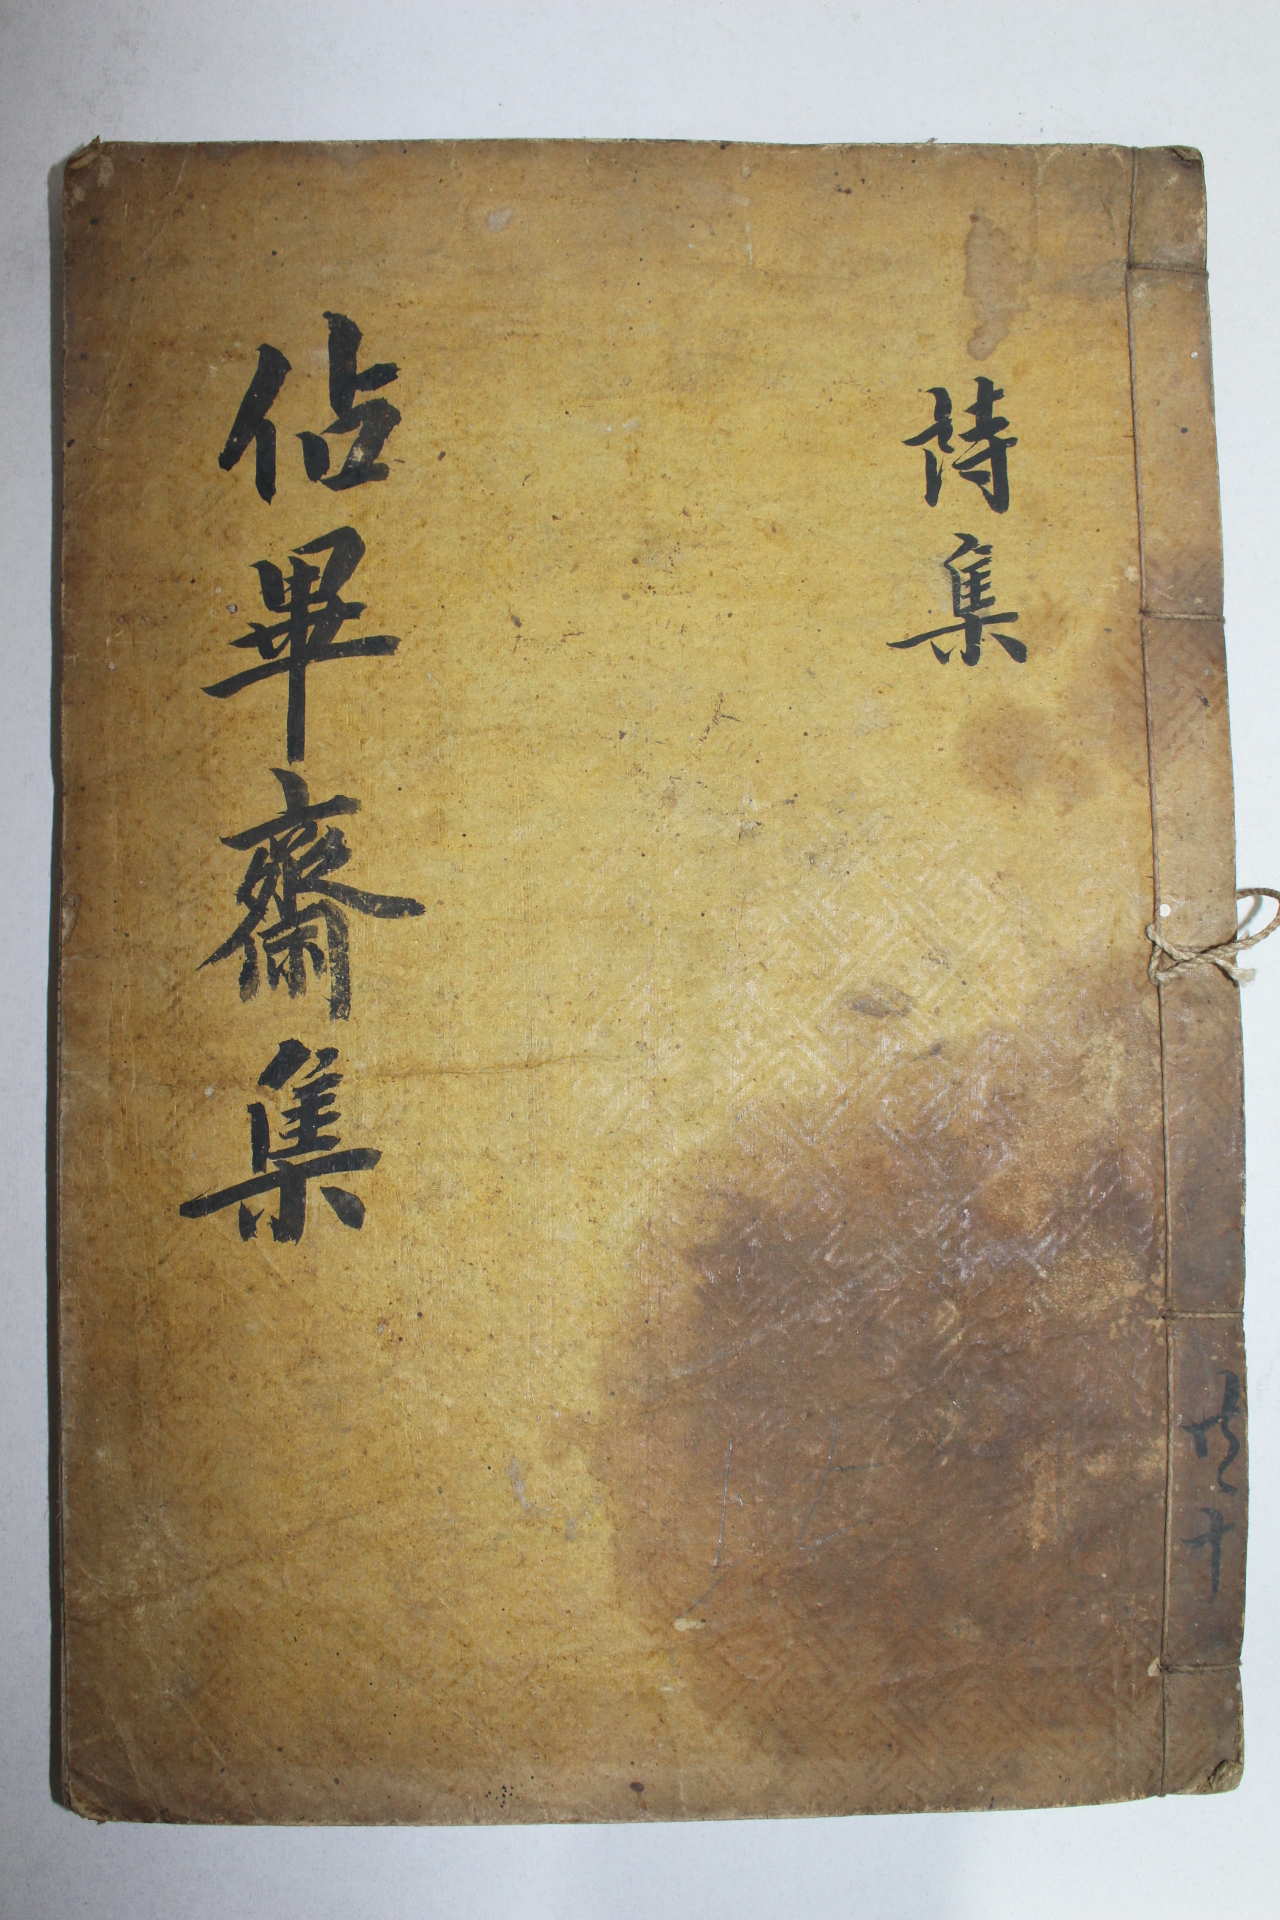 詩集
佔畢齋集
共十